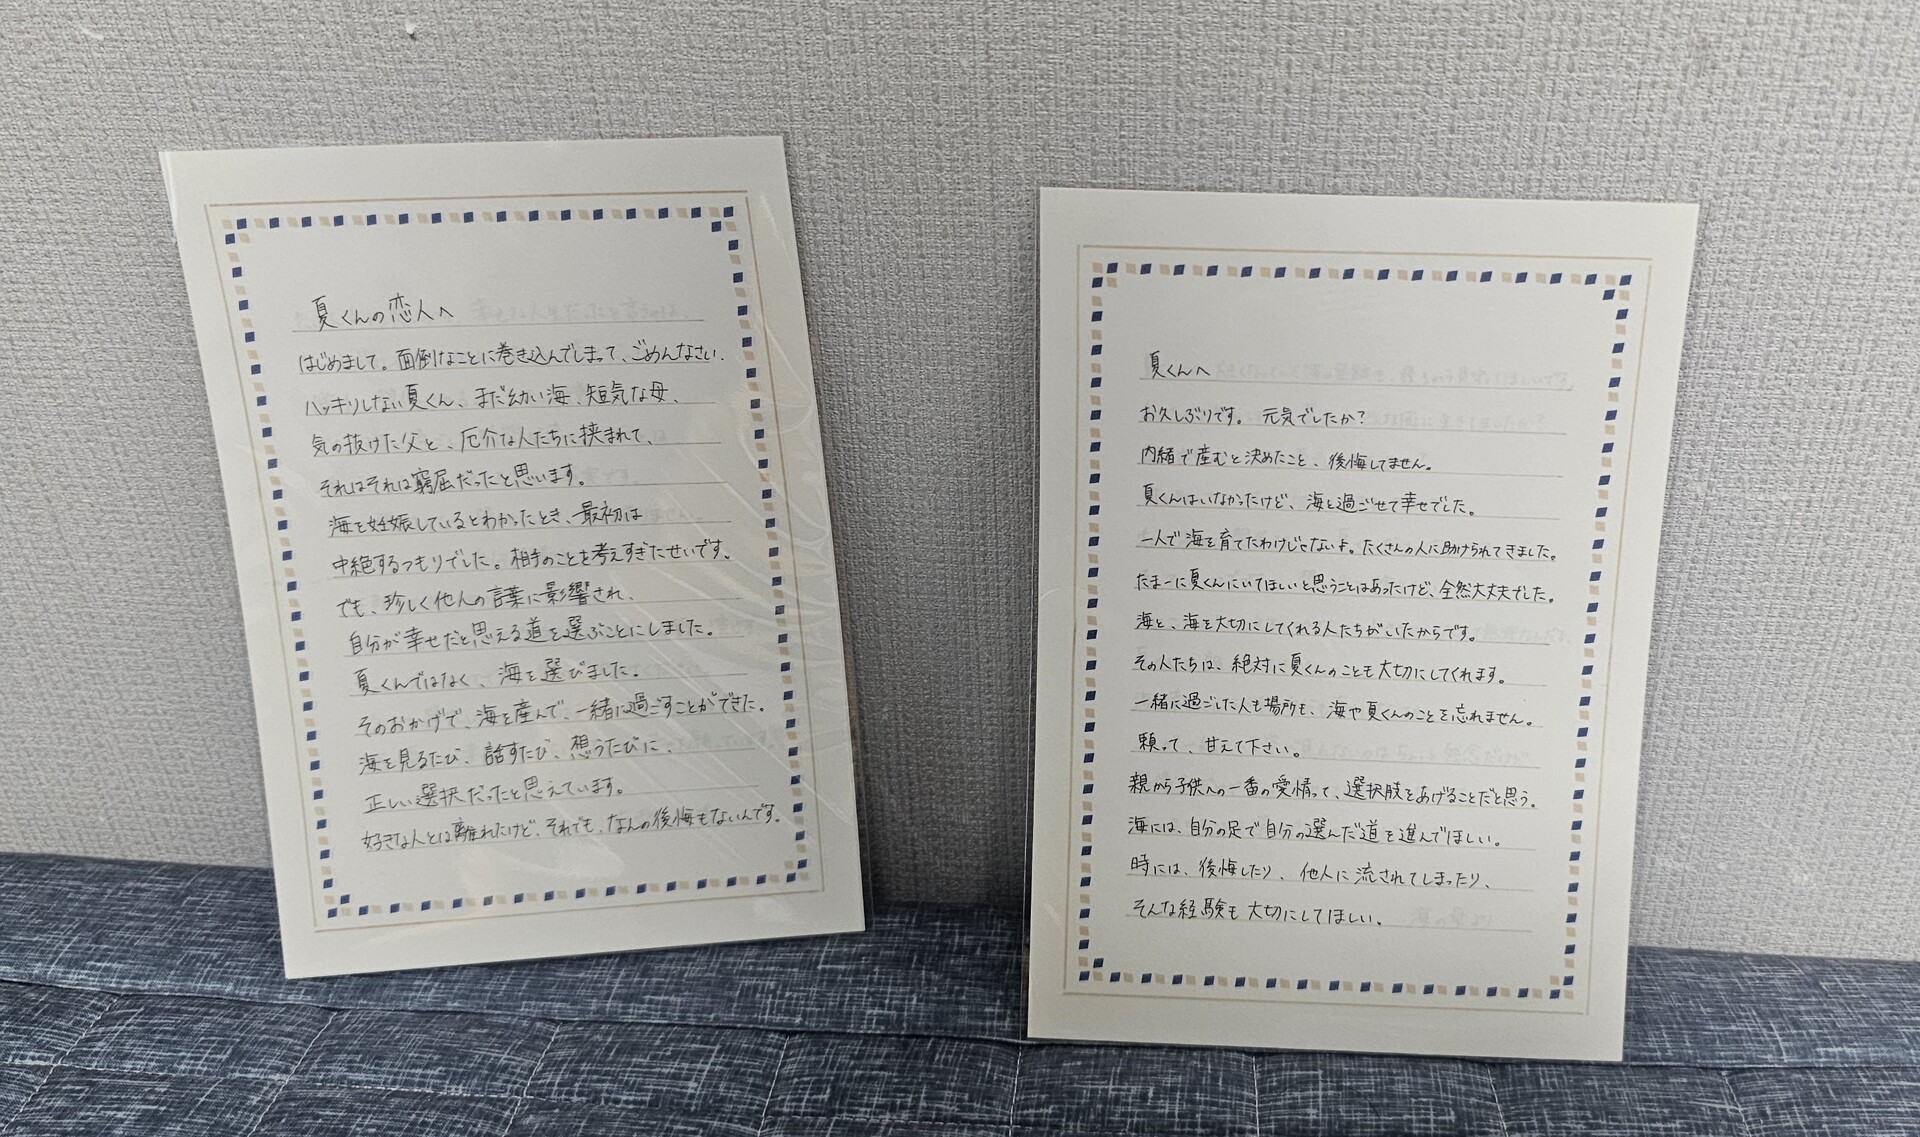 夏くんの恋人へ
はじめまして。面倒なことに巻き込んでしまって、ごめんなさい。
ハッキリしない夏くん、まだ幼い海、短気な母、
気の抜けた父と、厄介な人たちに挟まれて、
それはそれは窮屈だったと思います。
海を妊娠しているとわかったとき、最初は
中絶するつもりでした。相手のことを考えすぎたせいです。
でも、珍しく他人の言葉に影響され、
自分が幸せだと思える道を選ぶことにしました。
夏くんではなく、海を選びました。
そのおかげで、海を産んで、一緒に過ごすことができた。
海を見るたび、話すたび、想うたびに、
正しい選択だったと思えています。
好きな人とは離れたけど、それでも、なんの後悔もないんです。
夏くんへ
お久しぶりです。元気でしたか？
内緒で産むと決めたこと、後悔してません。
夏くんはいなかったけど、海と過ごせて幸せでした。
一人で海を育てたわけじゃないよ。たくさんの人に助けられてきました。
たまーに夏くんにいてほしいと思うことはあったけど、全然大丈夫でした。
海と、海を大切にしてくれる人たちがいたからです。
その人たちは、絶対に夏くんのことも大切にしてくれます。
一緒に過ごした人も場所も、海や夏くんのことを忘れません。
頼って、甘えて下さい。
親から子供への一番の愛情って、選択肢をあげることだと思う。
海には、自分の足で自分の選んだ道を進んでほしい。
時には、後悔したり、他人に流されてしまったり、
そんな経験も大切にしてほしい。